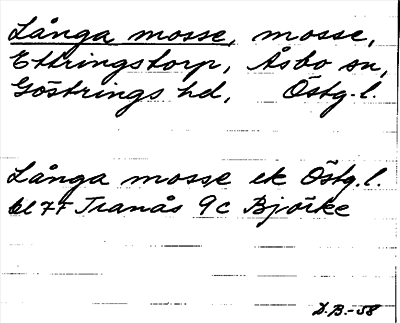 Långa mosse, mosse,
Ettringstorp, Åsbo sn,
Göstrings hd, Östg.l.
Långa mosse ek Östg.l.
bl 7F Tranås 9c Bjöike
D.B.-58